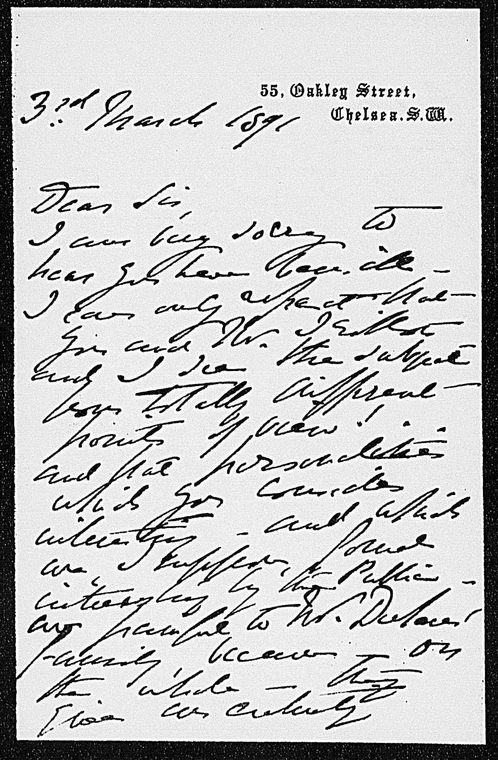 55, Oakley Street,
Chelsea. S.W.
3rd March 1891
Dear Sir,
I am very sorry to
hear you have been ill -
I can only repeat that
you and Mr.
and I see the subject
from totally different
points of view!
and that personalities
which you consider
interesting - and which
are, I suppose, found
interesting by the Public -
are painful to Mr.
family, because on
the whole - they
give an entirely